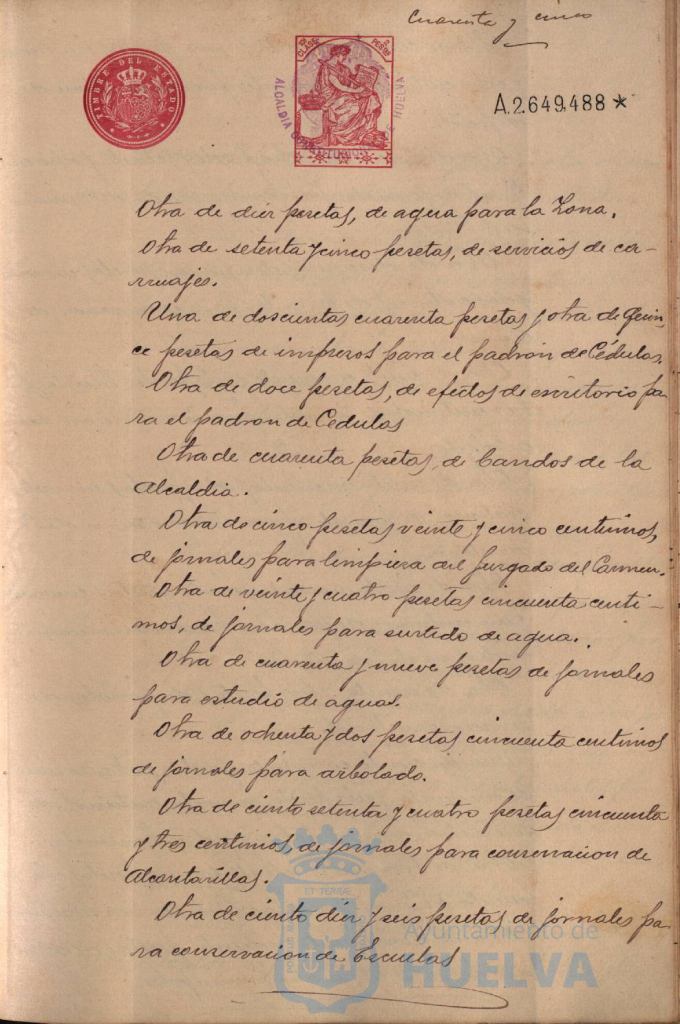 Cuarenta y cinco
TIMBRE DEL ESTADO
CLASE
PESETAS
ALCALDIA CONSTITUCIONAL DE HUELVA
A.2.649.488 *
Otra de diez pesetas, de agua para la Zona.
Otra de setenta y cinco pesetas, de servicios de ca-
rruajes.
Una de doscientas cuarenta pesetas y otra de Quin-
ce pesetas de impresos para el padrón de Cédulas.
Otra de doce pesetas, de efectos de escritorio pa-
ra el padron de Cedulas
Otra de cuarenta pesetas, de bandos de la
Alcaldia.
Otra de cinco pesetas veinte y cinco centimos,
de jornales para limpieza del Juzgado del Carmen.
Otra de veinte y cuatro pesetas cincuenta centi-
mos, de jornales para surtido de agua.
Otra de cuarenta y nueve pesetas de jornales
para estudio de aguas.
Otra de ochenta y dos pesetas cincuenta centimos
de jornales para arbolado.
Otra de ciento setenta y cuatro pesetas cincuenta
y tres centimos, de jornales para conservacion de
Alcantarillas.
Otra de ciento diez y seis pesetas de jornales pa-
ra conservacion de Escuelas
Ayuntamiento de
HUELVA